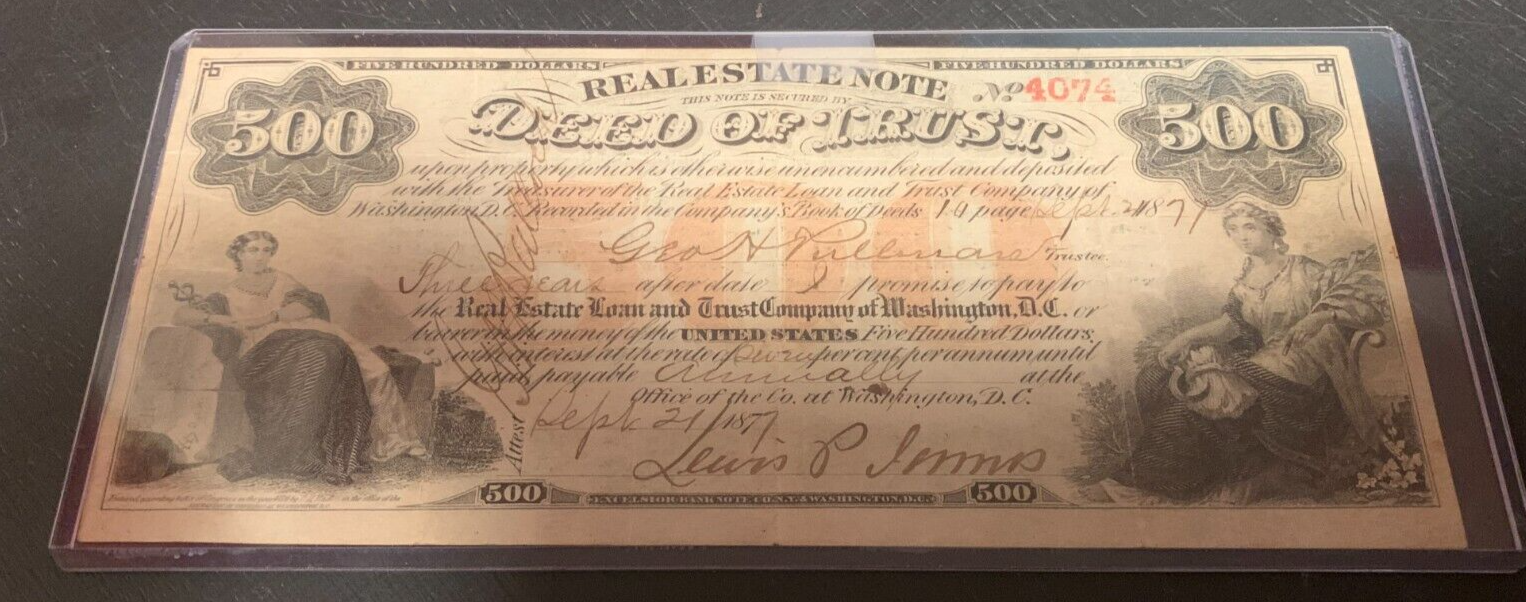 FIVE HUNDRED DOLLARS FIVE HUNDRED DOLLARS
REAL ESTATE NOTE No 4074
THIS NOTE IS SECURED BY
500 DEED OF TRUST, 500
upon property which is otherwise unencumbered and deposited
with the Treasurer of the Real Estate Loan and Trust Company of
Washington D.C. Recorded in the Company's Book of Deeds 10 page Sept. 21 1877
Geo H Trustee.
Three years after date I promise to pay to
the Real Estate Loan and Trust Company of Washington, D.C. or
bearer in the money of the UNITED STATES Five Hundred Dollars,
with interest at the rate of seven per cent per annum until
paid, payable annually at the
Office of the Co. at Washington, D.C.
Attest Sept. 21/1877
Lewis P
500 EXCELSIOR BANK NOTE CO. N.Y. & WASHINGTON, D.C. 500